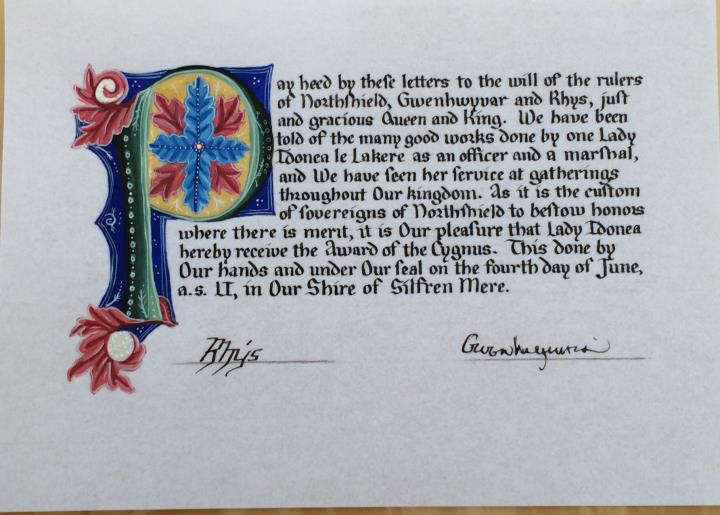 Pay heed by these letters to the will of the rulers
of Northshield, Gwenhwyvar and Rhys, just
and gracious Queen and King. We have been
told of the many good works done by one Lady
Idonea le Lakere as an officer and a marshal,
and We have seen her service at gatherings
throughout Our kingdom. As it is the custom
of sovereigns of Northshield to bestow honors
where there is merit, it is Our pleasure that Lady Idonea
hereby receive the Award of the Cygnus. This done by
Our hands and under Our seal on the fourth day of June,
a.s. LI, in Our Shire of Silfren Mere.
Rhys